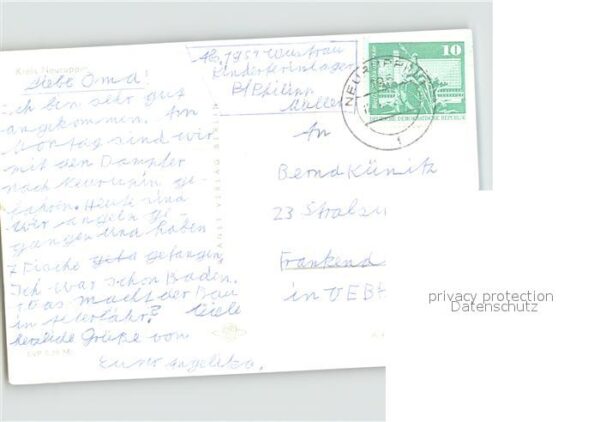 Kreis Neuruppin
Liebe Oma!
ich bin sehr gut
angekommen. Am
Montag sind wir
mit den Dampfer
nach Neurupin ge-
fahrn. Heute sind
wir angeln ge-
gangen und haben
7 Fische gefangen.
Ich war schon Baden.
Was macht der Bau
in? Viele
herzliche Grüße von
Eurer Angelika.
EVP
Abs. 1951 Wustrau
Kinderferienlager
B/Philipp
Müller
10
DEUTSCHE DEMOKRATISCHE REPUBLIK
NEURUPPIN
1
VERLAG BERLIN
An
Bernd Künitz
23 Stralsu
Frankend
in VEB
privacy protection
Datenschutz